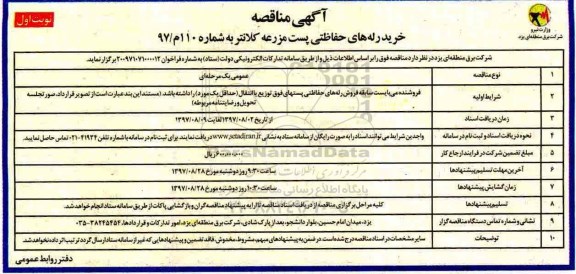 آگهی مناقصه
نوبت اول
خرید رله‌های حفاظتی پست مزرعه کلانتر به شماره ۱۱۰/م/۹۷
وزارت نیرو
شرکت برق منطقه‌ای یزد
شرکت برق منطقه‌ای یزد در نظر دارد مناقصه فوق را بر اساس اطلاعات ذیل و از طریق سامانه تدارکات الکترونیکی دولت (ستاد) به شماره فراخوان ۲۰۰۹۷۱۰۷۱۰۰۰۰۱۲ برگزار نماید.
۱ نوع مناقصه عمومی یک مرحله‌ای
۲ شرایط اولیه فروشنده می‌بایست سابقه فروش رله‌های حفاظتی پستهای فوق توزیع یا انتقال (حداقل یک مورد) را داشته باشد. (مستند این بند عبارت است از تصویر قرارداد، صورتجلسه تحویل و رضایتنامه مربوطه)
۳ زمان دریافت اسناد از تاریخ ۱۳۹۷/۰۸/۰۲ لغایت ۱۳۹۷/۰۸/۰۹
۴ نحوه دریافت اسناد و ثبت نام در سامانه واجدین شرایط می‌توانند اسناد را به صورت رایگان از سامانه ستاد به نشانی www.setadiran.ir دریافت نمایند. برای ثبت نام در سامانه با شماره تلفن ۴۱۹۳۴-۰۲۱ تماس حاصل نمایند.
۵ مبلغ تضمین شرکت در فرایند ارجاع کار ریال
۶ آخرین مهلت تسلیم پیشنهادها ساعت ۹:۳۰ روز دوشنبه مورخ ۱۳۹۷/۰۸/۲۸
۷ زمان گشایش پیشنهادها ساعت ۱۰:۳۰ روز دوشنبه مورخ ۱۳۹۷/۰۸/۲۸
۸ تسلیم پیشنهادها کلیه مراحل برگزاری مناقصه از دریافت اسناد مناقصه تا ارایه پیشنهاد مناقصه‌گران و بازگشایی پاکات از طریق سامانه ستاد انجام خواهد شد.
۹ نشانی و شماره تماس دستگاه مناقصه‌گزار یزد، میدان امام حسین، بلوار دانشجو، بعد از پارک شادی، شرکت برق منطقه‌ای یزد، امور تدارکات و قراردادها، ۳۸۲۴۵۴۵۴-۰۳۵
۱۰ توضیحات سایر مشخصات در اسناد مناقصه درج شده است در ضمن به پیشنهادهای مبهم، مشروط، مخدوش، فاقد تضمین و پیشنهادهایی که غیر از سامانه ستاد ارسال گردد ترتیب اثر داده نخواهد شد.
دفتر روابط عمومی